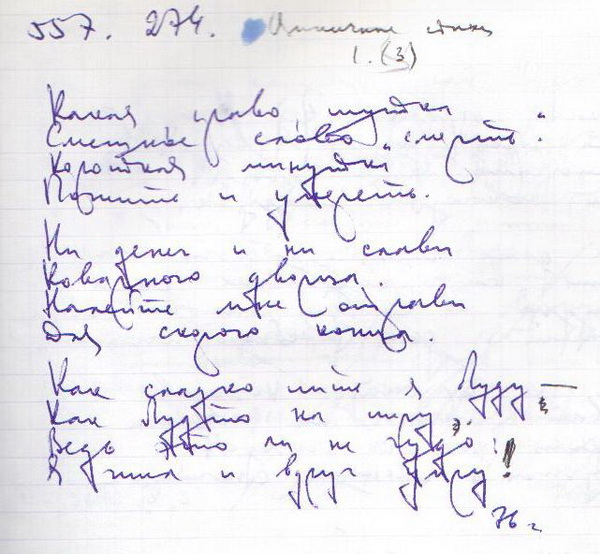 557. 274. Циничные стихи
1. (3)
Какая право шутка
Смешное слово "смерть".
Короткая минутка
Пожить и умереть.
Ни денег и ни славы
Коварного дворца.
Налейте мне отравы
Для скорого конца.
Как сладко пить я буду, —
Как будто на пиру.
Ведь это ли не чудо:
Я жил и вдруг умру!
76 г.